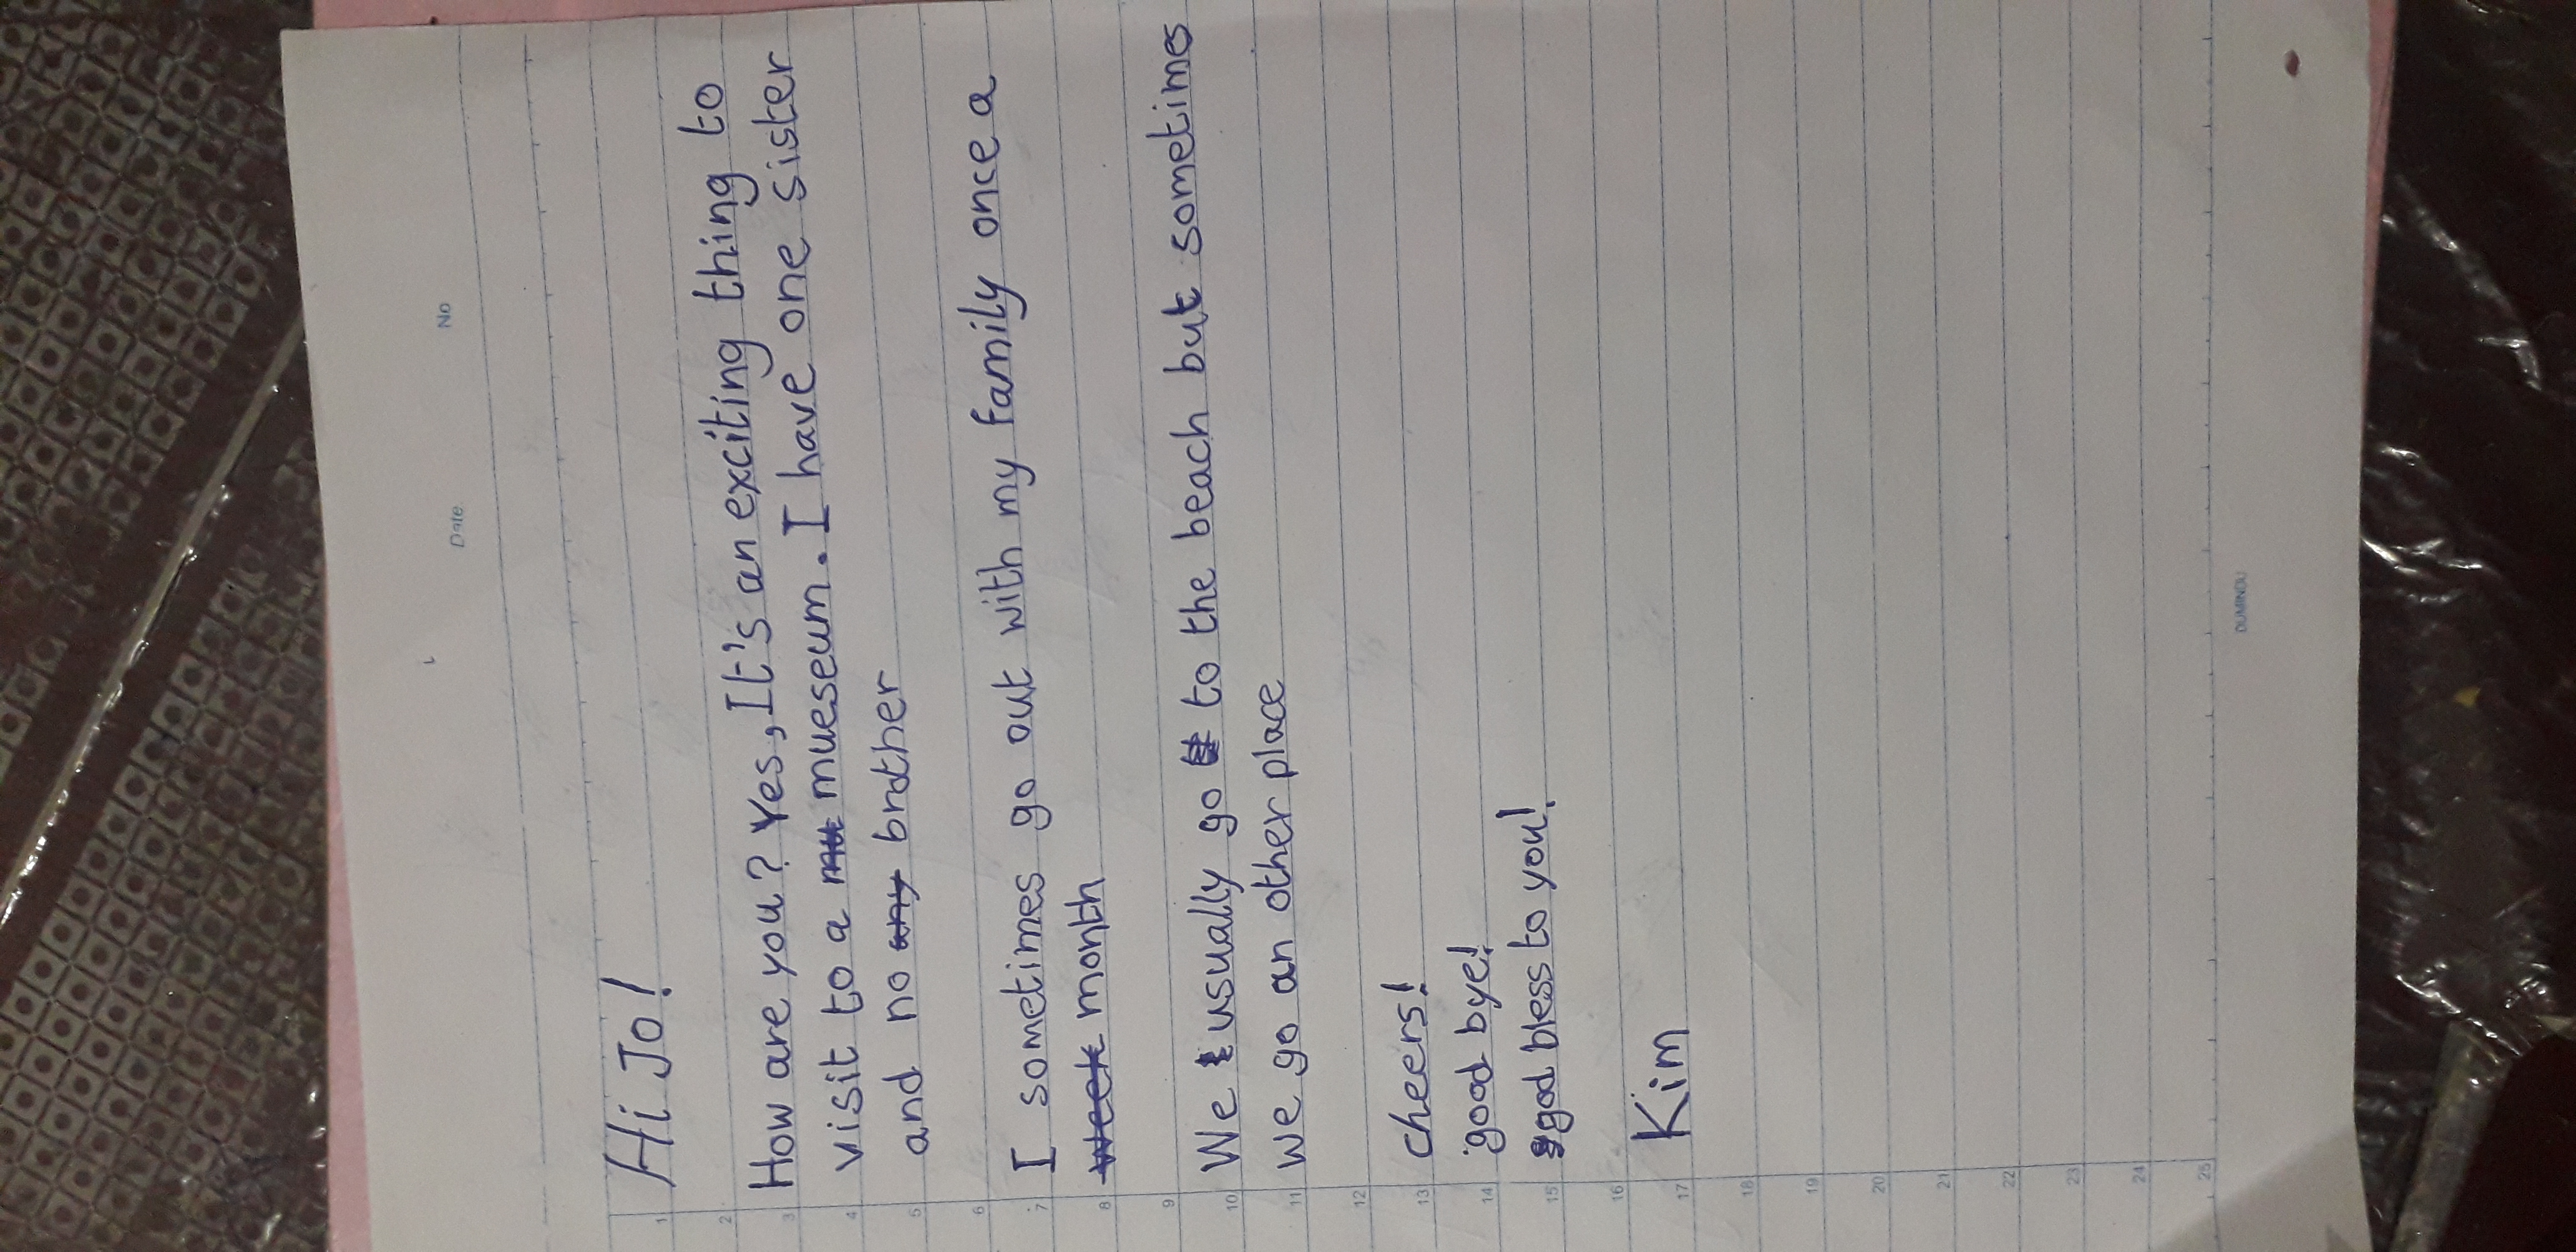 Date
No
Hi Jo!
How are you? Yes, It's an exciting thing to
visit to a mueseum. I have one sister
and no any brother
I sometimes go out with my family once a
week month
We usually go to the beach but sometimes
we go an other place
cheers!
good bye!
god bless to you!
Kim
1
2
3
4
5
6
7
8
9
10
11
12
13
14
15
16
17
18
19
20
21
22
23
24
25
DUMINDU